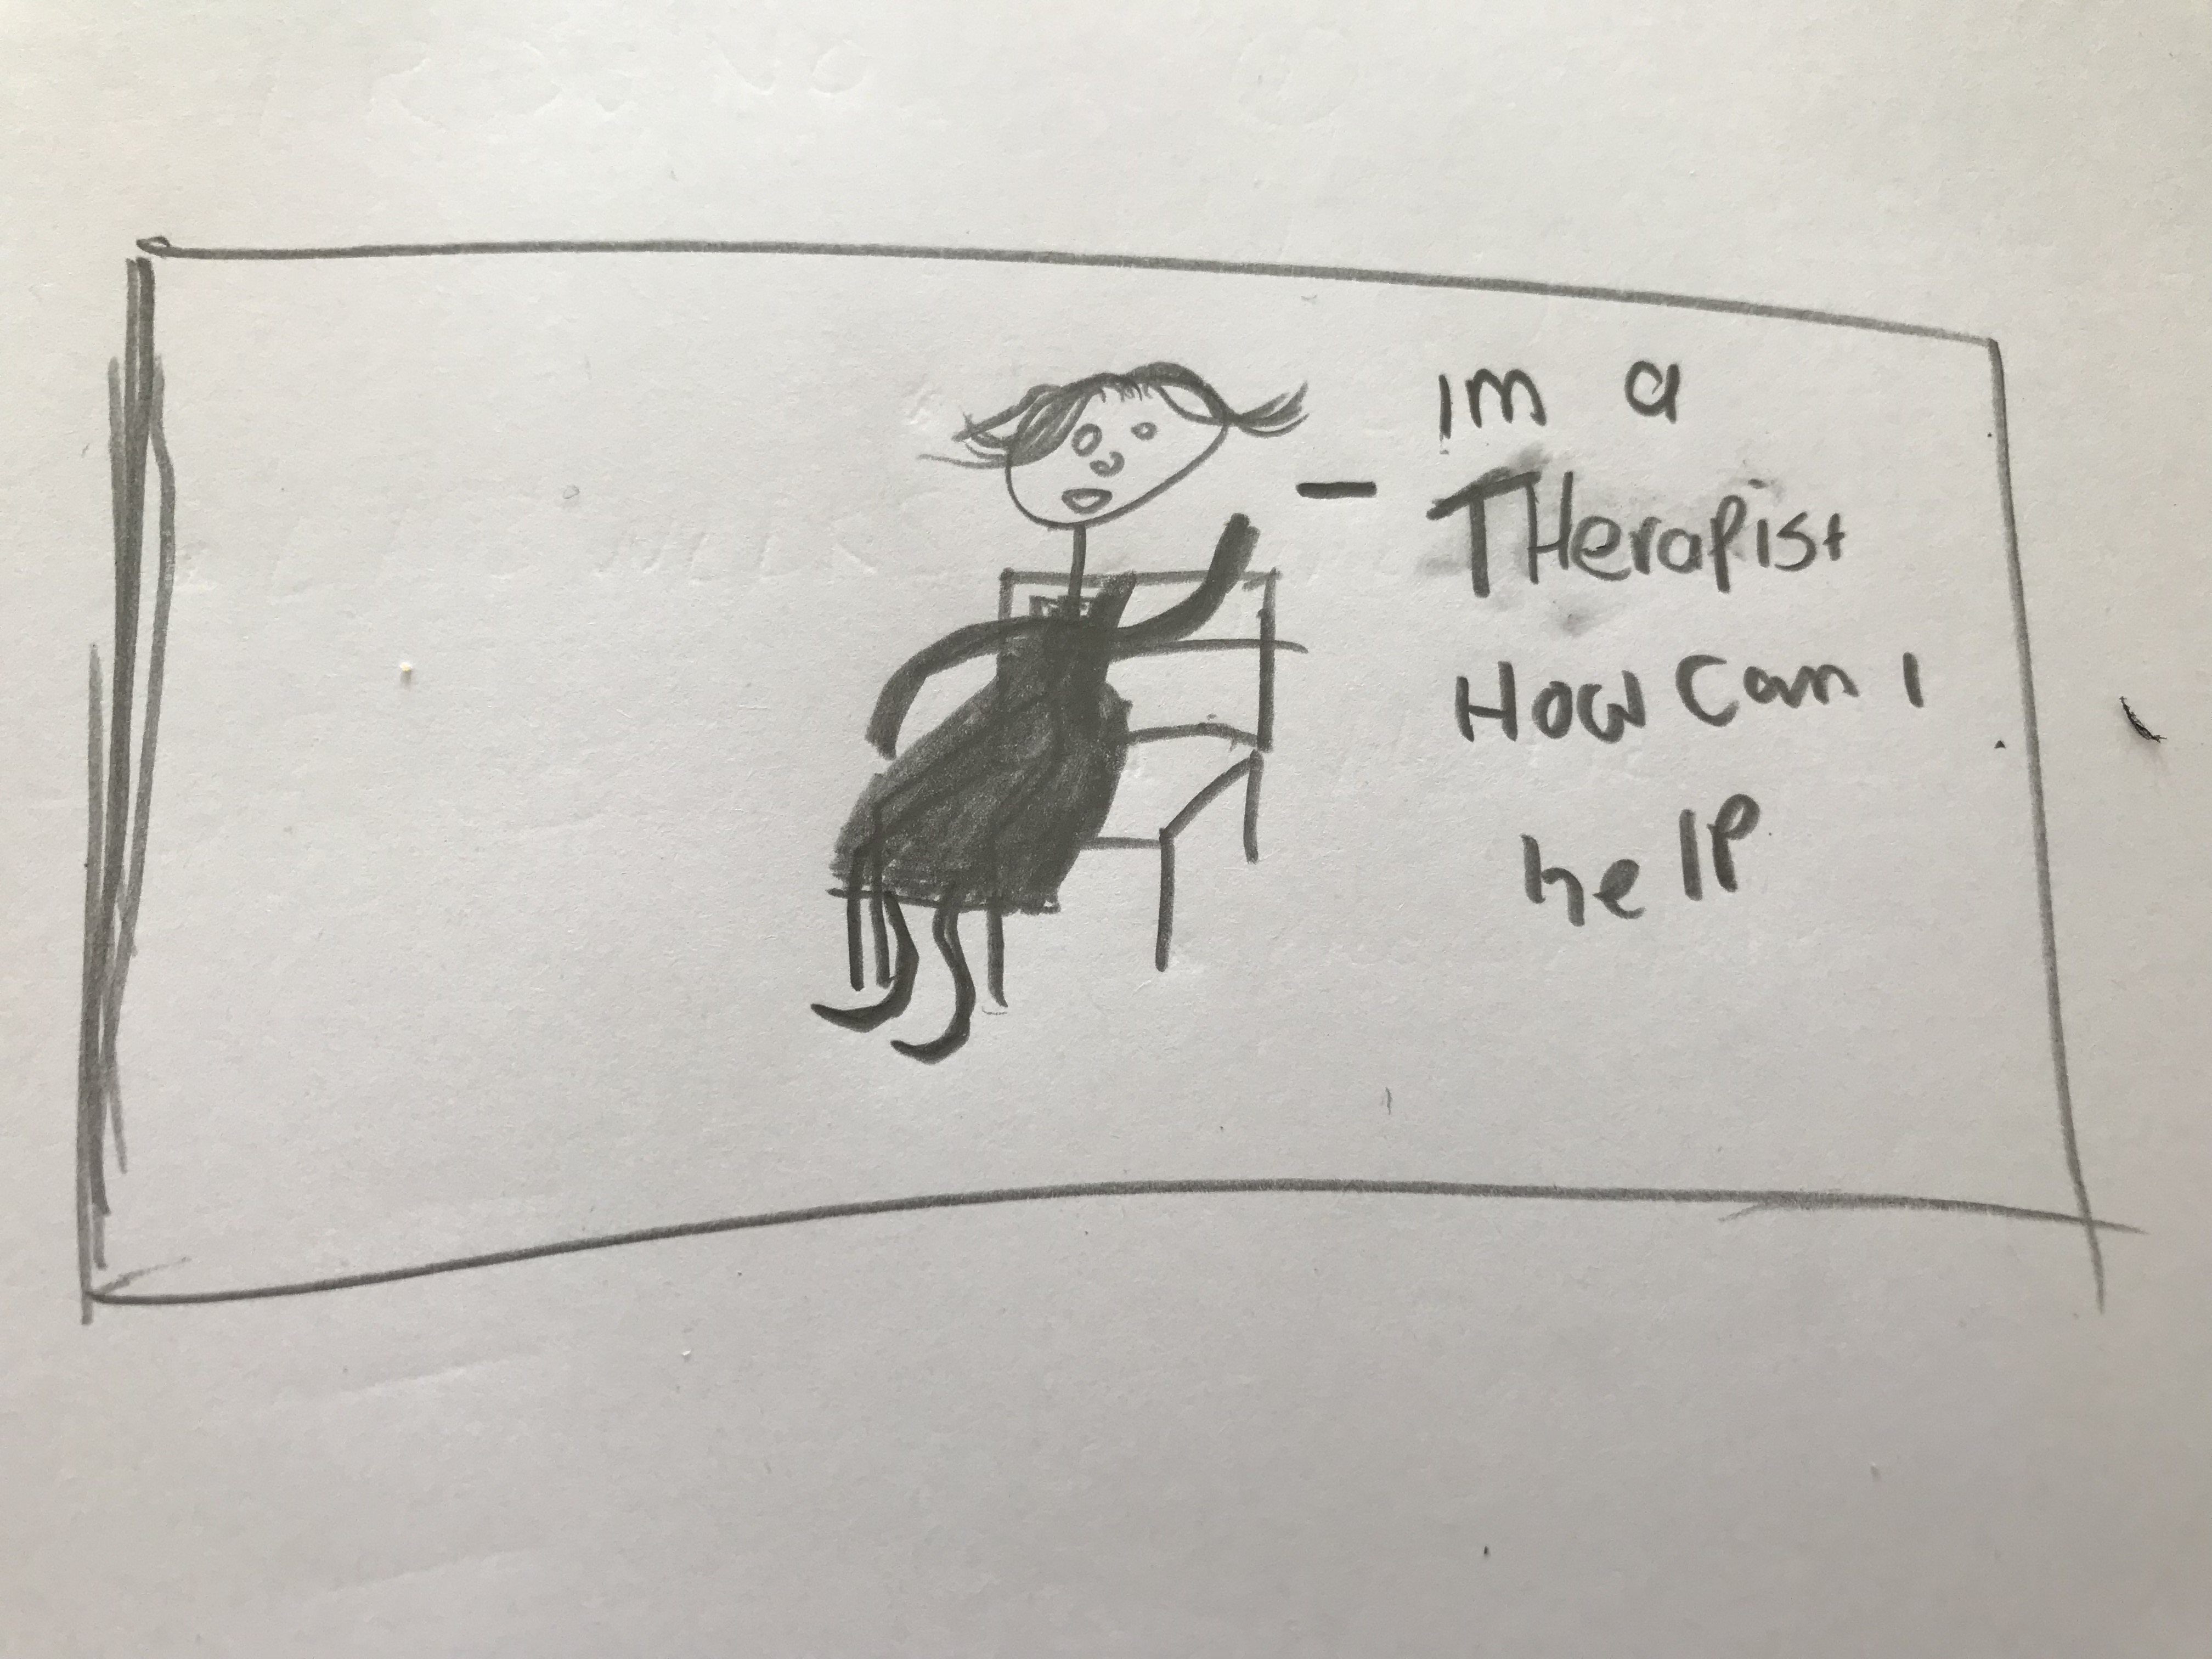 Im a
THerapist
How Can I
help